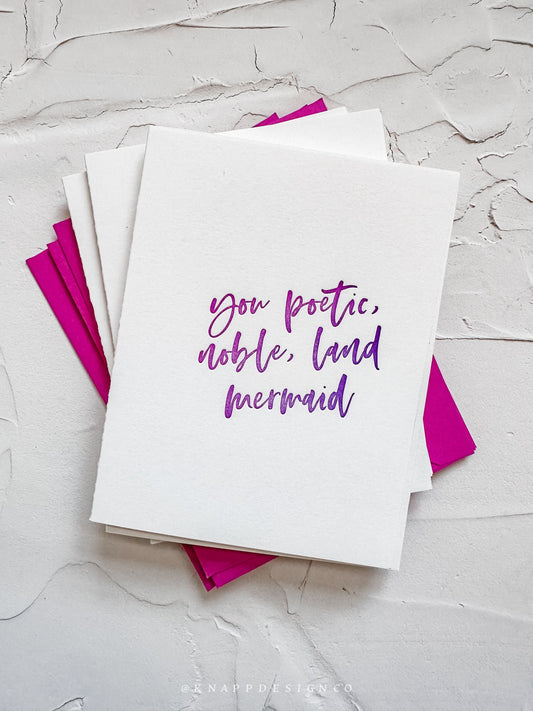 you poetic,
noble, land
mermaid
@KNAPPDESIGNCO